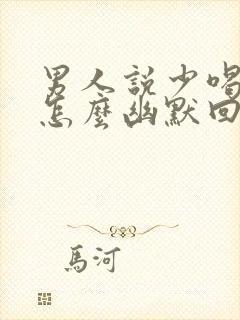 男人說少喝
怎麼幽默回
馬河